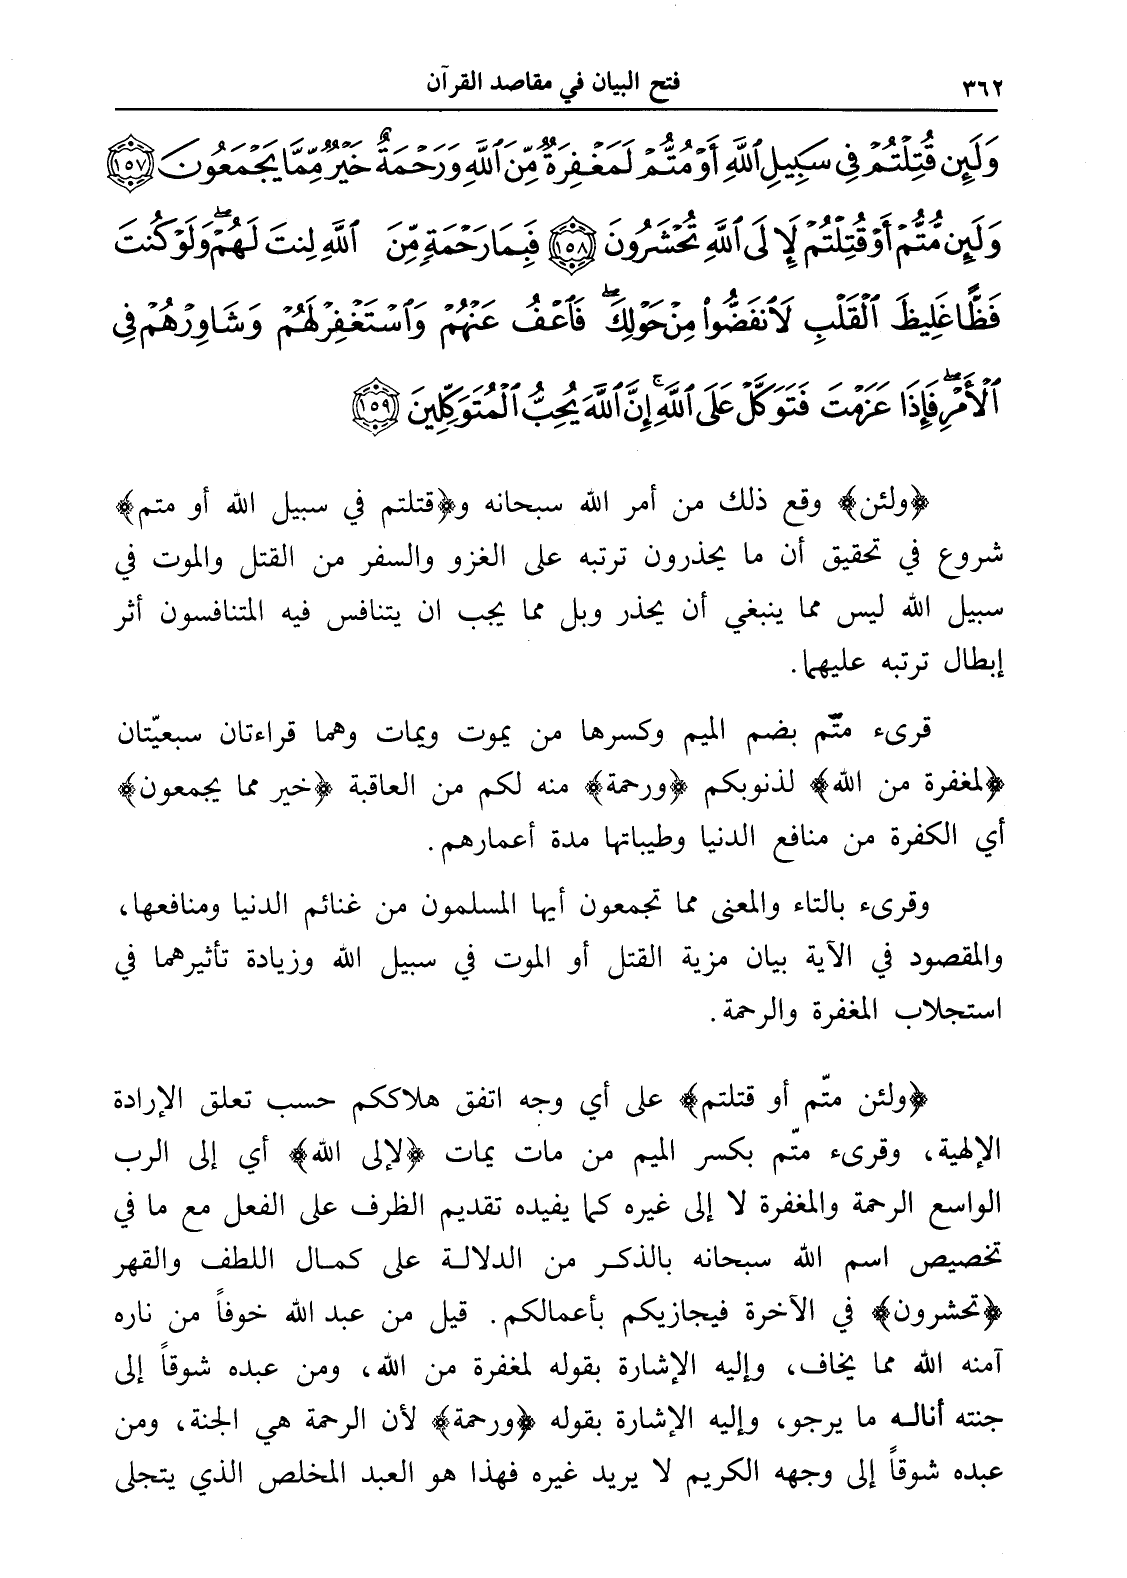 ٣٦٢
فتح البيان في مقاصد القرآن
وَلَئِن قُتِلْتُمْ فِي سَبِيلِ ٱللَّهِ أَوْ مُتُّمْ لَمَغْفِرَةٌ مِّنَ ٱللَّهِ وَرَحْمَةٌ خَيْرٌ مِّمَّا يَجْمَعُونَ ١٥٧
وَلَئِن مُّتُّمْ أَوْ قُتِلْتُمْ لَإِلَى ٱللَّهِ تُحْشَرُونَ ١٥٨ فَبِمَا رَحْمَةٍ مِّنَ ٱللَّهِ لِنتَ لَهُمْ ۖ وَلَوْ كُنتَ
فَظًّا غَلِيظَ ٱلْقَلْبِ لَٱنفَضُّوا۟ مِنْ حَوْلِكَ ۖ فَٱعْفُ عَنْهُمْ وَٱسْتَغْفِرْ لَهُمْ وَشَاوِرْهُمْ فِي
ٱلْأَمْرِ ۖ فَإِذَا عَزَمْتَ فَتَوَكَّلْ عَلَى ٱللَّهِ ۚ إِنَّ ٱللَّهَ يُحِبُّ ٱلْمُتَوَكِّلِينَ ١٥٩
﴿ولئن﴾ وقع ذلك من أمر الله سبحانه و﴿قتلتم في سبيل الله أو متم﴾
شروع في تحقيق أن ما يحذرون ترتبه على الغزو والسفر من القتل والموت في
سبيل الله ليس مما ينبغي أن يحذر وبل مما يجب ان يتنافس فيه المتنافسون أثر
إبطال ترتبه عليهما.
قرىء متّم بضم الميم وكسرها من يموت ويمات وهما قراءتان سبعيّتان
﴿لمغفرة من الله﴾ لذنوبكم ﴿ورحمة﴾ منه لكم من العاقبة ﴿خير مما يجمعون﴾
أي الكفرة من منافع الدنيا وطيباتها مدة أعمارهم.
وقرىء بالتاء والمعنى مما تجمعون أيها المسلمون من غنائم الدنيا ومنافعها،
والمقصود في الآية بيان مزية القتل أو الموت في سبيل الله وزيادة تأثيرهما في
استجلاب المغفرة والرحمة.
﴿ولئن متّم أو قتلتم﴾ على أي وجه اتفق هلاككم حسب تعلق الإرادة
الإلهية، وقرىء متّم بكسر الميم من مات يمات ﴿لإلى الله﴾ أي إلى الرب
الواسع الرحمة والمغفرة لا إلى غيره كما يفيده تقديم الظرف على الفعل مع ما في
تخصيص اسم الله سبحانه بالذكر من الدلالة على كمال اللطف والقهر
﴿تحشرون﴾ في الآخرة فيجازيكم بأعمالكم. قيل من عبد الله خوفاً من ناره
آمنه الله مما يخاف، وإليه الإشارة بقوله لمغفرة من الله، ومن عبده شوقاً إلى
جنته أناله ما يرجو، وإليه الإشارة بقوله ﴿ورحمة﴾ لأن الرحمة هي الجنة، ومن
عبده شوقاً إلى وجهه الكريم لا يريد غيره فهذا هو العبد المخلص الذي يتجلى